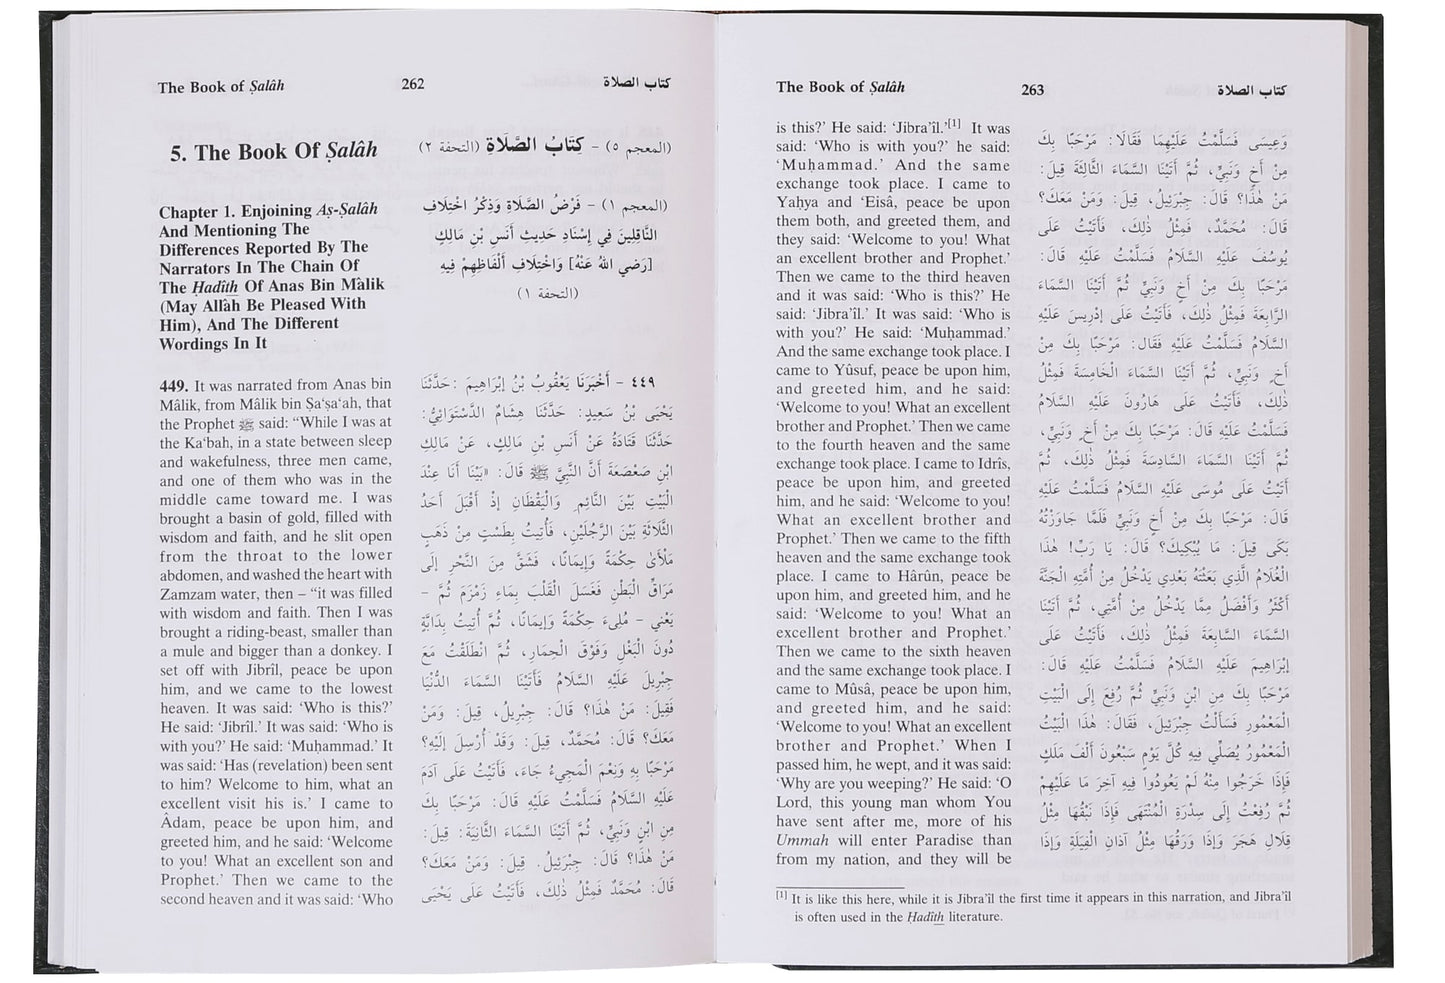 The Book of Ṣalâh 262 كتاب الصلاة
5. The Book Of Ṣalâh
Chapter 1. Enjoining Aṣ-Ṣalâh
And Mentioning The
Differences Reported By The
Narrators In The Chain Of
The Ḥadîth Of Anas Bin Mâlik
(May Allâh Be Pleased With
Him), And The Different
Wordings In It
449. It was narrated from Anas bin
Mâlik, from Mâlik bin Ṣa‘ṣa‘ah, that
the Prophet ﷺ said: “While I was at
the Ka‘bah, in a state between sleep
and wakefulness, three men came,
and one of them who was in the
middle came toward me. I was
brought a basin of gold, filled with
wisdom and faith, and he slit open
from the throat to the lower
abdomen, and washed the heart with
Zamzam water, then – “it was filled
with wisdom and faith. Then I was
brought a riding-beast, smaller than
a mule and bigger than a donkey. I
set off with Jibrîl, peace be upon
him, and we came to the lowest
heaven. It was said: ‘Who is this?’
He said: ‘Jibrîl.’ It was said: ‘Who is
with you?’ He said: ‘Muḥammad.’ It
was said: ‘Has (revelation) been sent
to him? Welcome to him, what an
excellent visit his is.’ I came to
Âdam, peace be upon him, and
greeted him, and he said: ‘Welcome
to you! What an excellent son and
Prophet.’ Then we came to the
second heaven and it was said: ‘Who
(المعجم ٥) – كِتَابُ الصَّلَاةِ (التحفة ٢)
(المعجم ١) – فَرْضُ الصَّلَاةِ وَذِكْرُ اخْتِلَافِ
النَّاقِلِينَ فِي إِسْنَادِ حَدِيثِ أَنَسِ بْنِ مَالِكٍ
[رَضي اللهُ عَنْهُ] وَاخْتِلَافِ أَلْفَاظِهِمْ فِيهِ
(التحفة ١)
٤٤٩ – أَخْبَرَنَا يَعْقُوبُ بْنُ إِبْرَاهِيمَ: حَدَّثَنَا
يَحْيَى بْنُ سَعِيدٍ: حَدَّثَنَا هِشَامٌ الدَّسْتَوَائِيُّ:
حَدَّثَنَا قَتَادَةُ عَنْ أَنَسِ بْنِ مَالِكٍ، عَنْ مَالِكِ
ابْنِ صَعْصَعَةَ أَنَّ النَّبِيَّ ﷺ قَالَ: «بَيْنَا أَنَا عِنْدَ
الْبَيْتِ بَيْنَ النَّائِمِ وَالْيَقْظَانِ إِذْ أَقْبَلَ أَحَدُ
الثَّلَاثَةِ بَيْنَ الرَّجُلَيْنِ، فَأُتِيتُ بِطَسْتٍ مِنْ ذَهَبٍ
مَلْأَى حِكْمَةً وَإِيمَانًا، فَشَقَّ مِنَ النَّحْرِ إِلَى
مَرَاقِّ الْبَطْنِ فَغَسَلَ الْقَلْبَ بِمَاءِ زَمْزَمَ ثُمَّ –
يَعْنِي – مُلِىءَ حِكْمَةً وَإِيمَانًا، ثُمَّ أُتِيتُ بِدَابَّةٍ
دُونَ الْبَغْلِ وَفَوْقَ الْحِمَارِ، ثُمَّ انْطَلَقْتُ مَعَ
جِبْرِيلَ عَلَيْهِ السَّلَامُ فَأَتَيْنَا السَّمَاءَ الدُّنْيَا
فَقِيلَ: مَنْ هٰذَا؟ قَالَ: جِبْرِيلُ، قِيلَ: وَمَنْ
مَعَكَ؟ قَالَ: مُحَمَّدٌ، قِيلَ: وَقَدْ أُرْسِلَ إِلَيْهِ؟
مَرْحَبًا بِهِ وَنِعْمَ الْمَجِيءُ جَاءَ، فَأَتَيْتُ عَلَى آدَمَ
عَلَيْهِ السَّلَامُ فَسَلَّمْتُ عَلَيْهِ قَالَ: مَرْحَبًا بِكَ
مِنِ ابْنٍ وَنَبِيٍّ، ثُمَّ أَتَيْنَا السَّمَاءَ الثَّانِيَةَ: قِيلَ:
مَنْ هٰذَا؟ قَالَ: جِبْرَئِيلُ. قِيلَ: وَمَنْ مَعَكَ؟
قَالَ: مُحَمَّدٌ فَمِثْلُ ذٰلِكَ، فَأَتَيْتُ عَلَى يَحْيَى
The Book of Ṣalâh 263 كتاب الصلاة
is this?’ He said: ‘Jibra’îl.’[1] It was
said: ‘Who is with you?’ he said:
‘Muḥammad.’ And the same
exchange took place. I came to
Yaḥya and ‘Eisâ, peace be upon
them both, and greeted them, and
they said: ‘Welcome to you! What
an excellent brother and Prophet.’
Then we came to the third heaven
and it was said: ‘Who is this?’ He
said: ‘Jibra’îl.’ It was said: ‘Who is
with you?’ He said: ‘Muḥammad.’
And the same exchange took place. I
came to Yûsuf, peace be upon him,
and greeted him, and he said:
‘Welcome to you! What an excellent
brother and Prophet.’ Then we came
to the fourth heaven and the same
exchange took place. I came to Idris,
peace be upon him, and greeted
him, and he said: ‘Welcome to you!
What an excellent brother and
Prophet.’ Then we came to the fifth
heaven and the same exchange took
place. I came to Hârûn, peace be
upon him, and greeted him, and he
said: ‘Welcome to you! What an
excellent brother and Prophet.’
Then we came to the sixth heaven
and the same exchange took place. I
came to Mûsâ, peace be upon him,
and greeted him, and he said:
‘Welcome to you! What an excellent
brother and Prophet.’ When I
passed him, he wept, and it was said:
‘Why are you weeping?’ He said: ‘O
Lord, this young man whom You
have sent after me, more of his
Ummah will enter Paradise than
from my nation, and they will be
وَعِيسَى فَسَلَّمْتُ عَلَيْهِمَا فَقَالَا: مَرْحَبًا بِكَ
مِنْ أَخٍ وَنَبِيٍّ، ثُمَّ أَتَيْنَا السَّمَاءَ الثَّالِثَةَ قِيلَ:
مَنْ هٰذَا؟ قَالَ: جِبْرَئِيلُ، قِيلَ: وَمَنْ مَعَكَ؟
قَالَ: مُحَمَّدٌ، فَمِثْلُ ذٰلِكَ، فَأَتَيْتُ عَلَى
يُوسُفَ عَلَيْهِ السَّلَامُ فَسَلَّمْتُ عَلَيْهِ قَالَ:
مَرْحَبًا بِكَ مِنْ أَخٍ وَنَبِيٍّ ثُمَّ أَتَيْنَا السَّمَاءَ
الرَّابِعَةَ فَمِثْلُ ذٰلِكَ، فَأَتَيْتُ عَلَى إِدْرِيسَ عَلَيْهِ
السَّلَامُ فَسَلَّمْتُ عَلَيْهِ فَقَالَ: مَرْحَبًا بِكَ مِنْ
أَخٍ وَنَبِيٍّ، ثُمَّ أَتَيْنَا السَّمَاءَ الْخَامِسَةَ فَمِثْلُ
ذٰلِكَ، فَأَتَيْتُ عَلَى هَارُونَ عَلَيْهِ السَّلَامُ
فَسَلَّمْتُ عَلَيْهِ قَالَ: مَرْحَبًا بِكَ مِنْ أَخٍ وَنَبِيٍّ،
ثُمَّ أَتَيْنَا السَّمَاءَ السَّادِسَةَ فَمِثْلُ ذٰلِكَ، ثُمَّ
أَتَيْتُ عَلَى مُوسَى عَلَيْهِ السَّلَامُ فَسَلَّمْتُ عَلَيْهِ
قَالَ: مَرْحَبًا بِكَ مِنْ أَخٍ وَنَبِيٍّ فَلَمَّا جَاوَزْتُهُ
بَكَى قِيلَ: مَا يُبْكِيكَ؟ قَالَ: يَا رَبِّ! هٰذَا
الْغُلَامُ الَّذِي بَعَثْتَهُ بَعْدِي يَدْخُلُ مِنْ أُمَّتِهِ الْجَنَّةَ
أَكْثَرُ وَأَفْضَلُ مِمَّا يَدْخُلُ مِنْ أُمَّتِي، ثُمَّ أَتَيْنَا
السَّمَاءَ السَّابِعَةَ فَمِثْلُ ذٰلِكَ، فَأَتَيْتُ عَلَى
إِبْرَاهِيمَ عَلَيْهِ السَّلَامُ فَسَلَّمْتُ عَلَيْهِ قَالَ:
مَرْحَبًا بِكَ مِنِ ابْنٍ وَنَبِيٍّ ثُمَّ رُفِعَ إِلَى الْبَيْتِ
الْمَعْمُورِ فَسَأَلْتُ جِبْرَئِيلَ، فَقَالَ: هٰذَا الْبَيْتُ
الْمَعْمُورُ يُصَلِّي فِيهِ كُلَّ يَوْمٍ سَبْعُونَ أَلْفَ مَلَكٍ
فَإِذَا خَرَجُوا مِنْهُ لَمْ يَعُودُوا فِيهِ آخِرَ مَا عَلَيْهِمْ
ثُمَّ رُفِعْتُ إِلَى سِدْرَةِ الْمُنْتَهَى فَإِذَا نَبْقُهَا مِثْلُ
قِلَالِ هَجَرَ وَإِذَا وَرَقُهَا مِثْلُ آذَانِ الْفِيَلَةِ وَإِذَا
[1] It is like this here, while it is Jibra’îl the first time it appears in this narration, and Jibra’îl
is often used in the Ḥadîth literature.